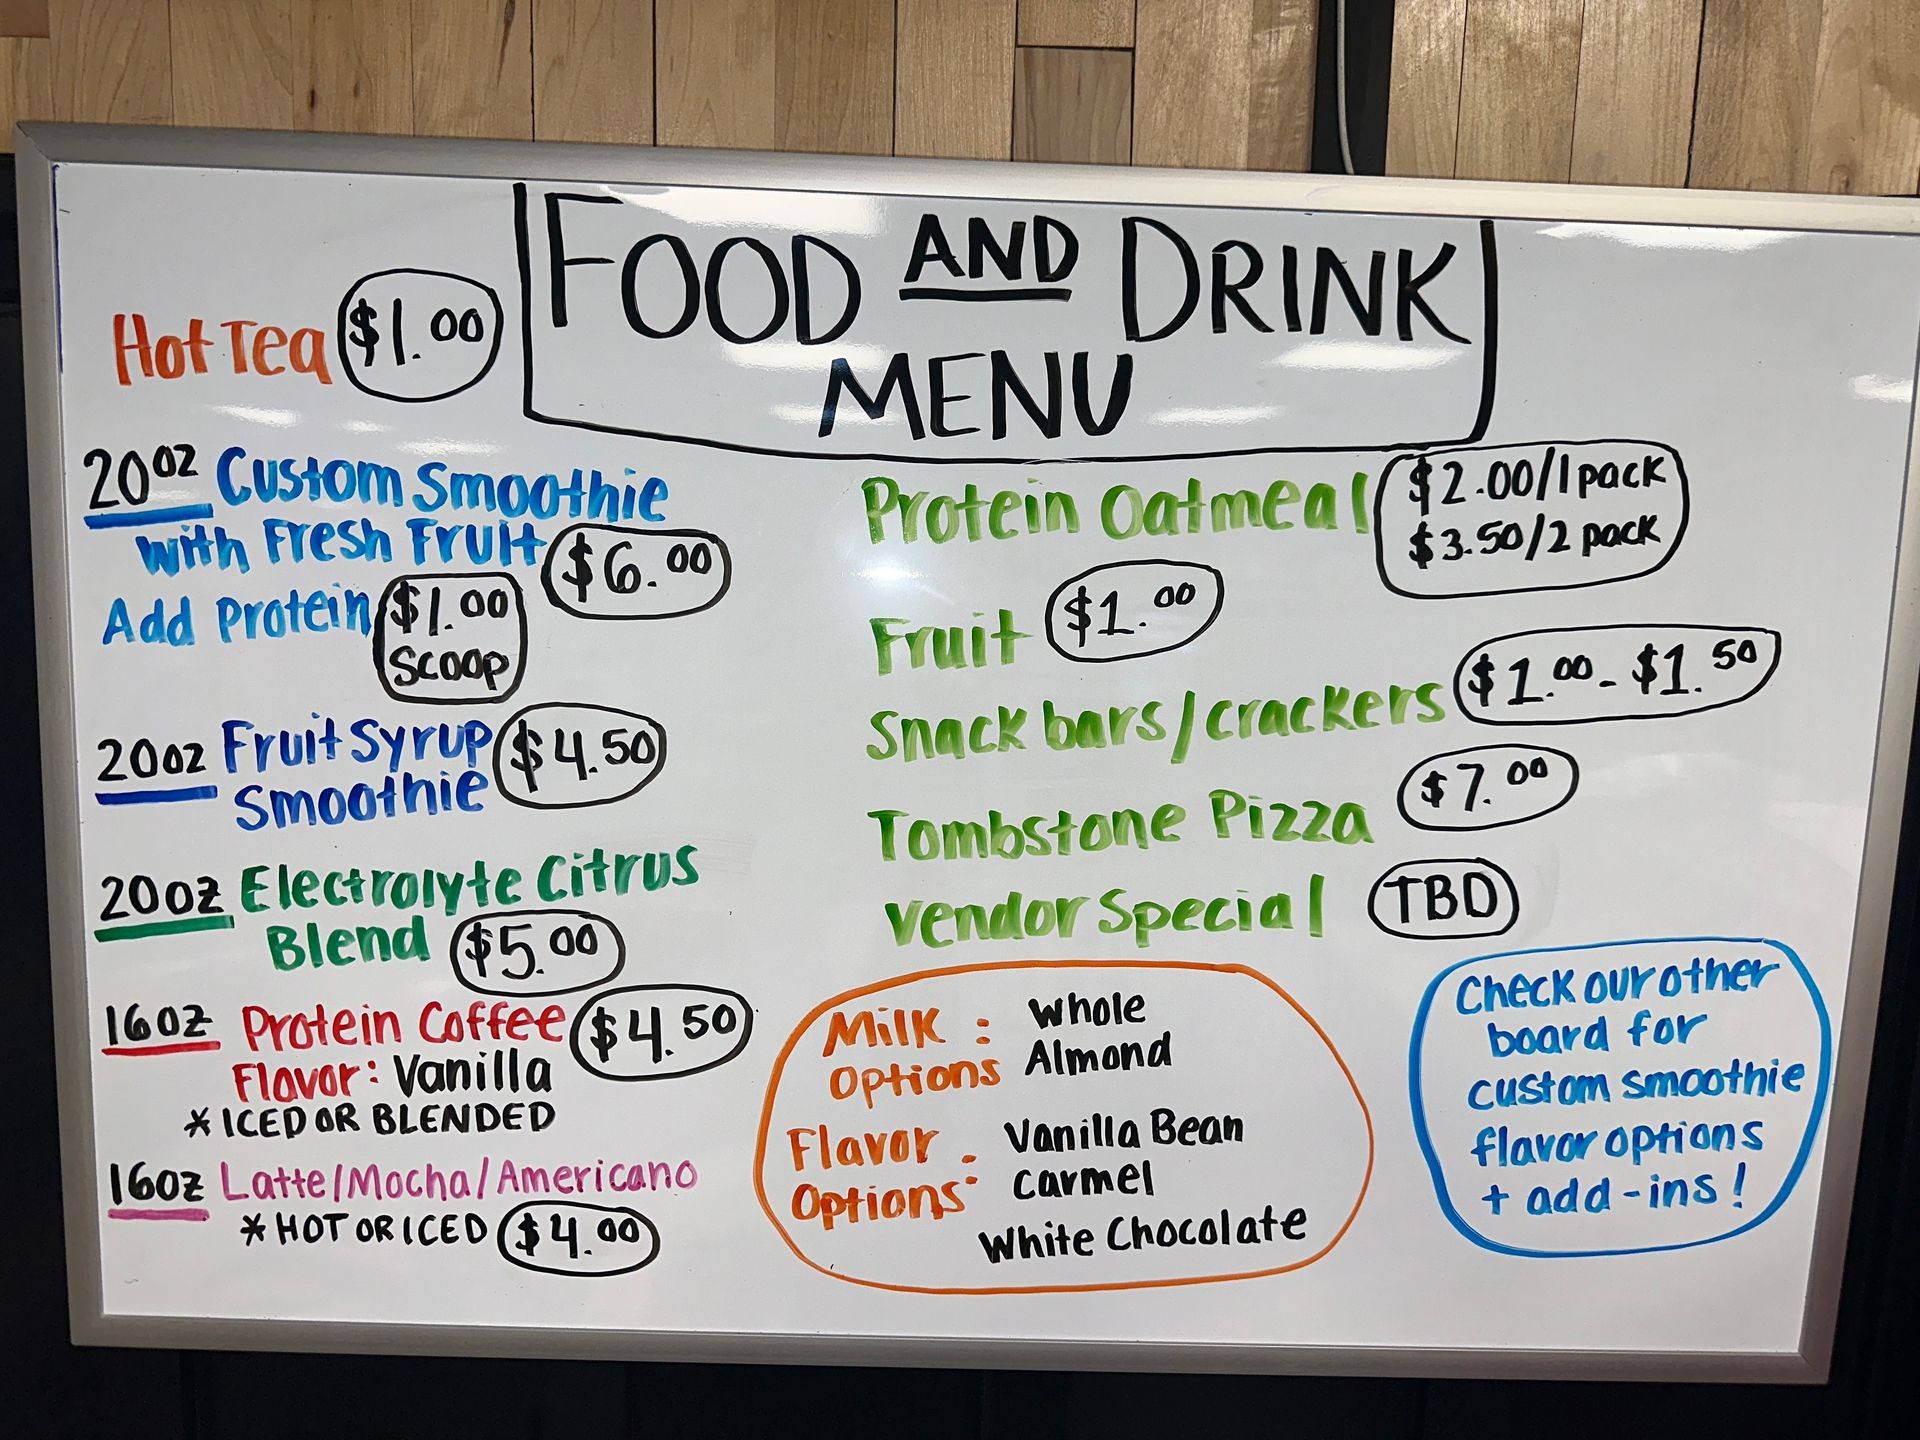 FOOD AND DRINK
MENU
Hot Tea $1.00
20oz Custom Smoothie
with Fresh Fruit $6.00
Add Protein $1.00
Scoop
20oz Fruit Syrup
Smoothie $4.50
20oz Electrolyte Citrus
Blend $5.00
16oz Protein Coffee $4.50
Flavor: Vanilla
* ICED OR BLENDED
16oz Latte/Mocha/Americano
* HOT OR ICED $4.00
Protein Oatmeal $2.00/1 pack
$3.50/2 pack
Fruit $1.00
Snack bars/crackers $1.00 - $1.50
Tombstone Pizza $7.00
Vendor Special TBD
Milk : Whole
Options Almond
Flavor : Vanilla Bean
Options Carmel
White Chocolate
Check our other
board for
custom smoothie
flavor options
+ add-ins!